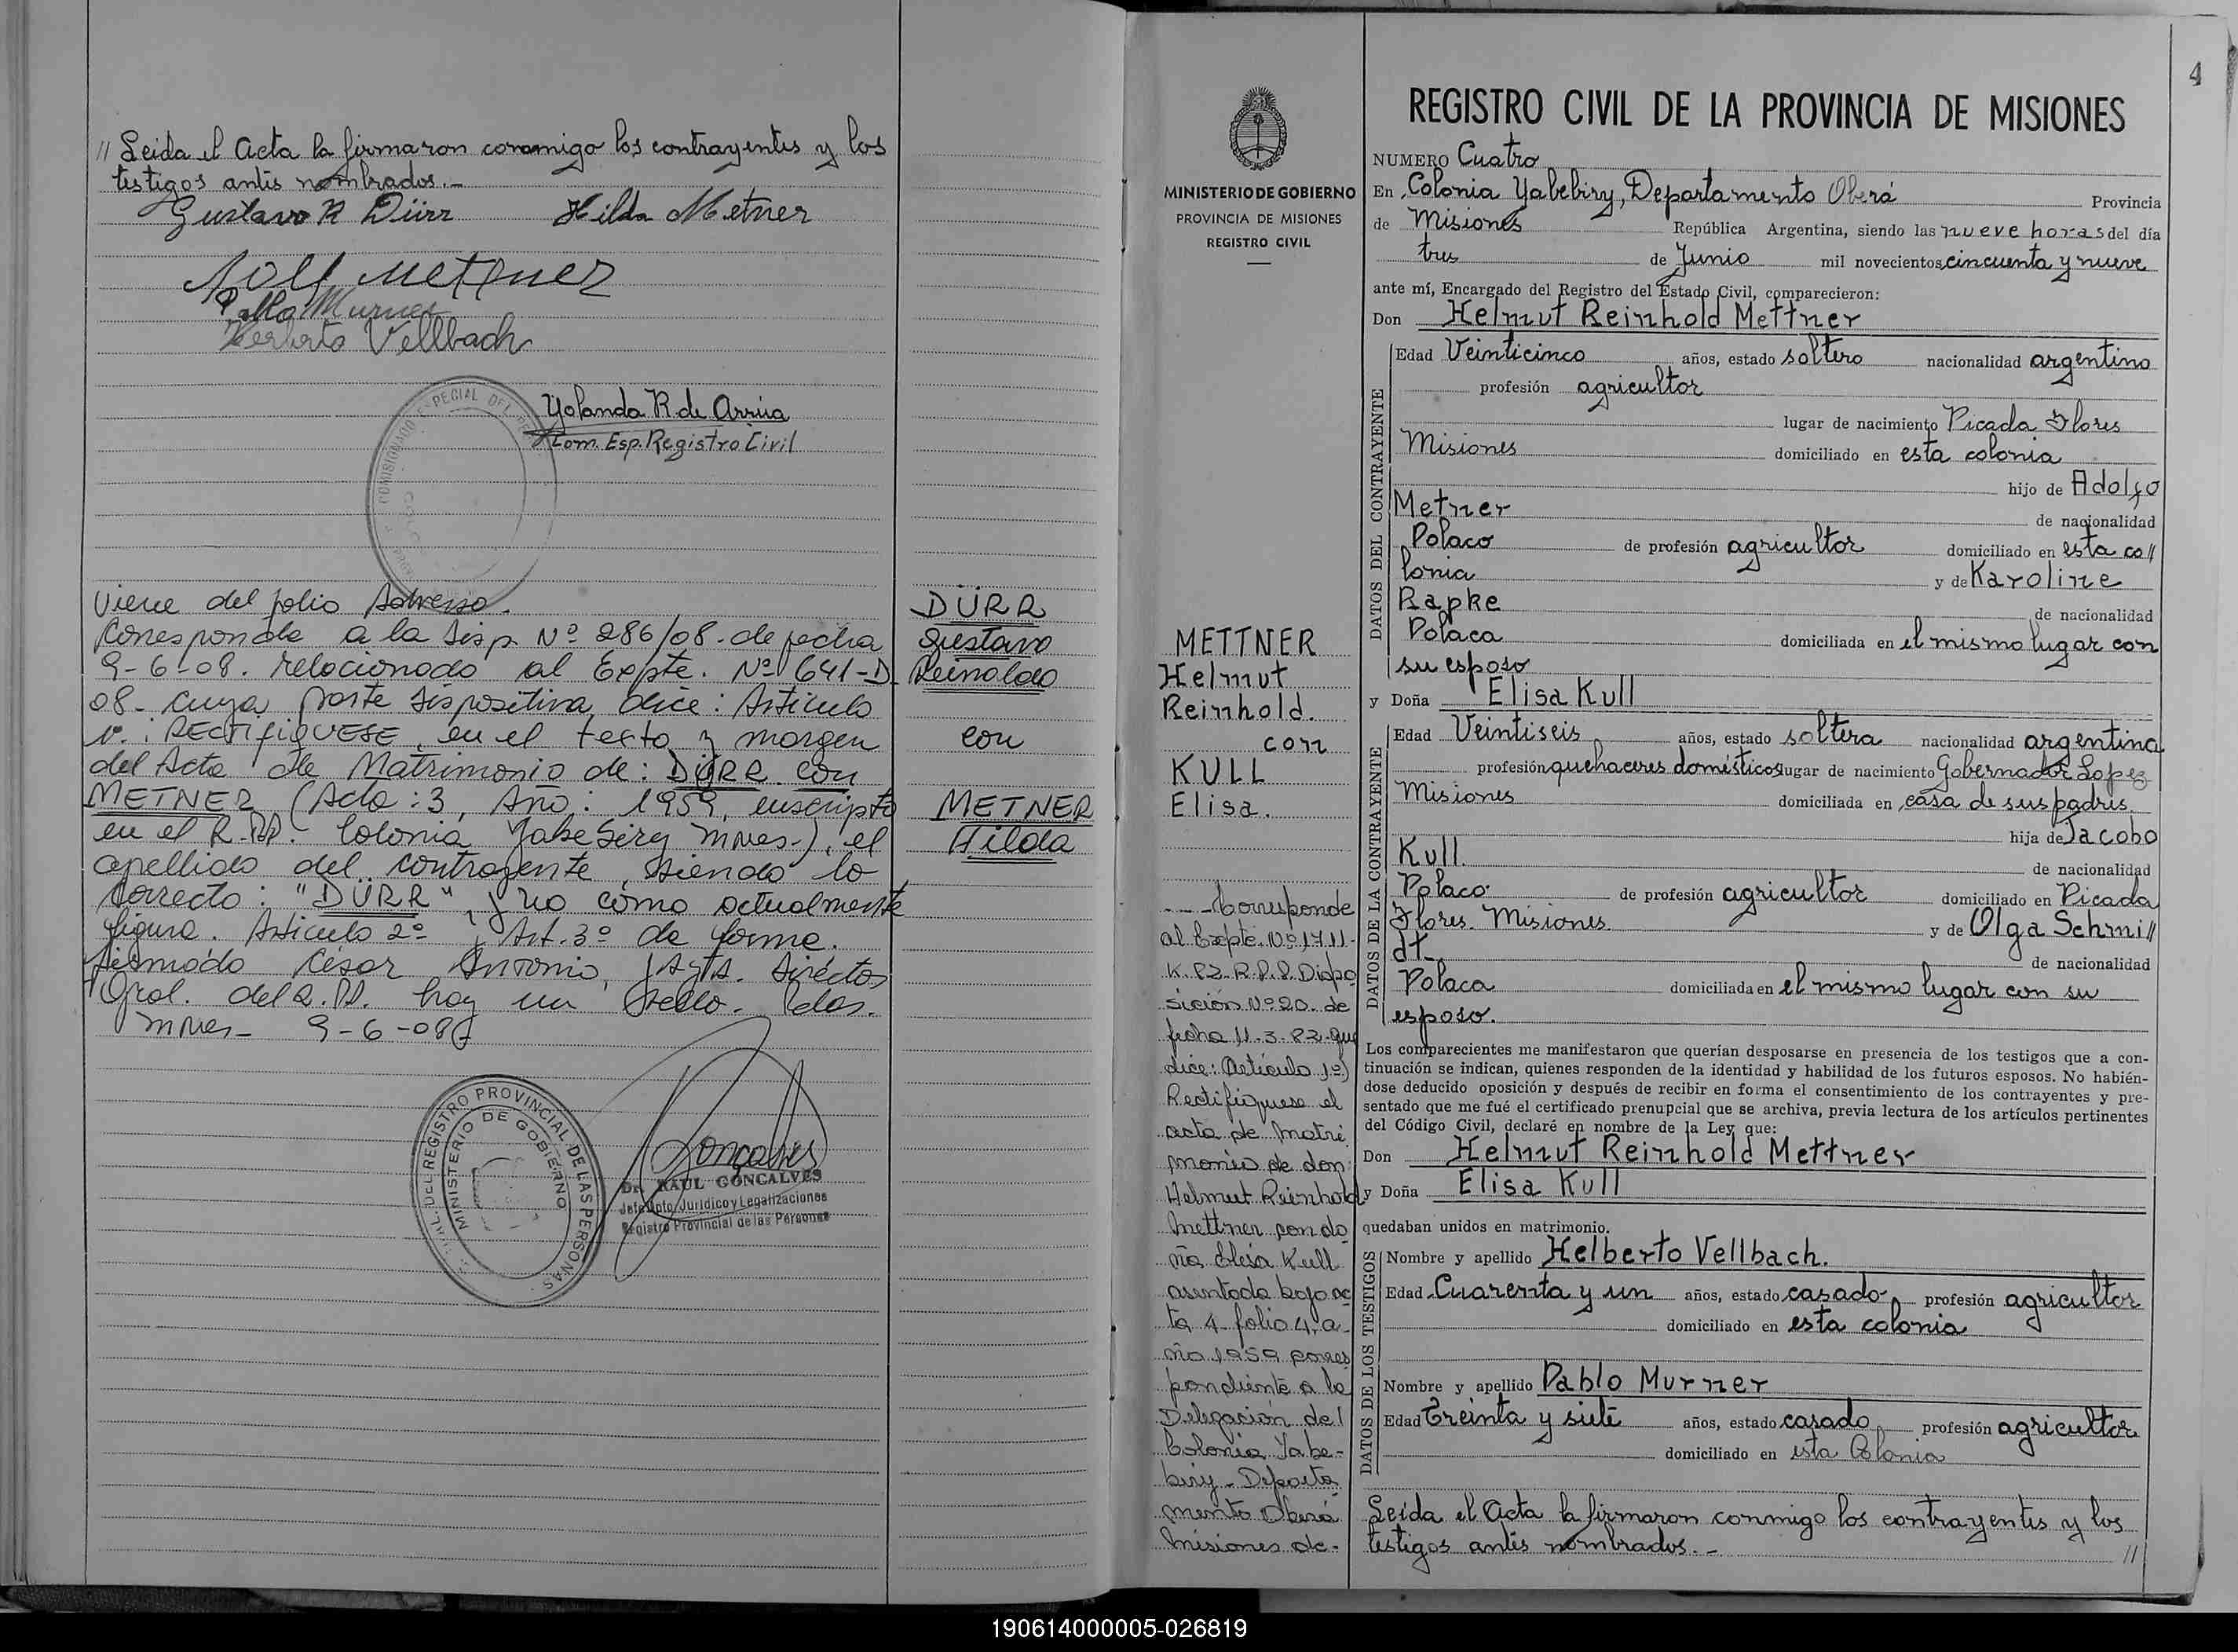 // Leida el Acta la firmaron conmigo los contrayentes y los
testigos antes nombrados.-
Gustavo R Dürr Hilda Metner
Adolf Mettner
Pablo Murner
Herberto Vellbach
Yolanda R de Arrúa
Com. Esp. Registro Civil
COMISIONADO ESPECIAL DEL
Viene del folio Adverso.
Corresponde a la Disp. Nº 286/08. de fecha
9-6-08. relacionado al Expte. Nº 641-D-
08- cuya parte dispositiva dice: Artículo
1º: RECTIFIQUESE, en el texto y margen
del Acta de Matrimonio de: DÜRR con
METNER (Acta: 3, Año: 1959, inscripto
en el R.PP. Colonia Yabebiry Mnes-), el
apellido del contrayente, siendo lo
correcto: "DÜRR", y no como actualmente
figura. Artículo 2º y Art. 3º de forma.
firmado César Antonio, Director
Gral. del R.PP. hay un sello. Pdas.
Mnes- 9-6-08
REGISTRO PROVINCIAL DE LAS PERSONAS
MINISTERIO DE GOBIERNO
Goncalves
Dr. RAUL GONCALVES
Jefe Dpto. Jurídico y Legalizaciones
Registro Provincial de las Personas
DÜRR
Gustavo
Reinaldo
con
METNER
Hilda
4
MINISTERIO DE GOBIERNO
PROVINCIA DE MISIONES
REGISTRO CIVIL
METTNER
Helmut
Reinhold.
con
KULL
Elisa.
---Corresponde
al Expte. Nº 1711-
K-82-R.P.P. Dispo
sición Nº 20. de
fecha 11-3-82-que
dice: Artículo 1º)
Rectifíquese el
acta de Matri
monio de don
Helmut Reinhold
Mettner con do
ña Elisa Kull
asentada bajo ac
ta 4 folio 4, a-
ño 1959 corres
pondiente a la
Delegación de/
Colonia Yabe-
biry-Departa
mento Oberá
Misiones de-
REGISTRO CIVIL DE LA PROVINCIA DE MISIONES
NUMERO Cuatro
En Colonia Yabebiry, Departamento Oberá Provincia
de Misiones República Argentina, siendo las nueve horas del día
tres de Junio mil novecientos cincuenta y nueve
ante mí, Encargado del Registro del Estado Civil, comparecieron:
Don Helmut Reinhold Mettner
DATOS DEL CONTRAYENTE
Edad Veinticinco años, estado soltero nacionalidad argentino
profesión agricultor
lugar de nacimiento Picada Flores
Misiones domiciliado en esta colonia
hijo de Adolfo
Metner de nacionalidad
Polaco de profesión agricultor domiciliado en esta co//
lonia y de Karoline
Rapke de nacionalidad
Polaca domiciliada en el mismo lugar con
su esposo
y Doña Elisa Kull
DATOS DE LA CONTRAYENTE
Edad Veintiseis años, estado soltera nacionalidad argentina
profesión quehaceres domésticos lugar de nacimiento Gobernador Lopez
Misiones domiciliada en casa de sus padres
hija de Jacobo
Kull. de nacionalidad
Polaco. de profesión agricultor domiciliado en Picada
Flores. Misiones. y de Olga Schmi//
dt- de nacionalidad
Polaca domiciliada en el mismo lugar con su
esposo.
Los comparecientes me manifestaron que querían desposarse en presencia de los testigos que a con-
tinuación se indican, quienes responden de la identidad y habilidad de los futuros esposos. No habién-
dose deducido oposición y después de recibir en forma el consentimiento de los contrayentes y pre-
sentado que me fué el certificado prenupcial que se archiva, previa lectura de los artículos pertinentes
del Código Civil, declaré en nombre de la Ley que:
Don Helmut Reinhold Mettner
y Doña Elisa Kull
quedaban unidos en matrimonio.
DATOS DE LOS TESTIGOS
Nombre y apellido Helberto Vellbach.
Edad Cuarenta y un años, estado casado- profesión agricultor
domiciliado en esta colonia
Nombre y apellido Pablo Murner
Edad Treinta y siete años, estado casado profesión agricultor
domiciliado en esta Colonia
Leída el Acta la firmaron conmigo los contrayentes y los
testigos antes nombrados.- //
190614000005-026819